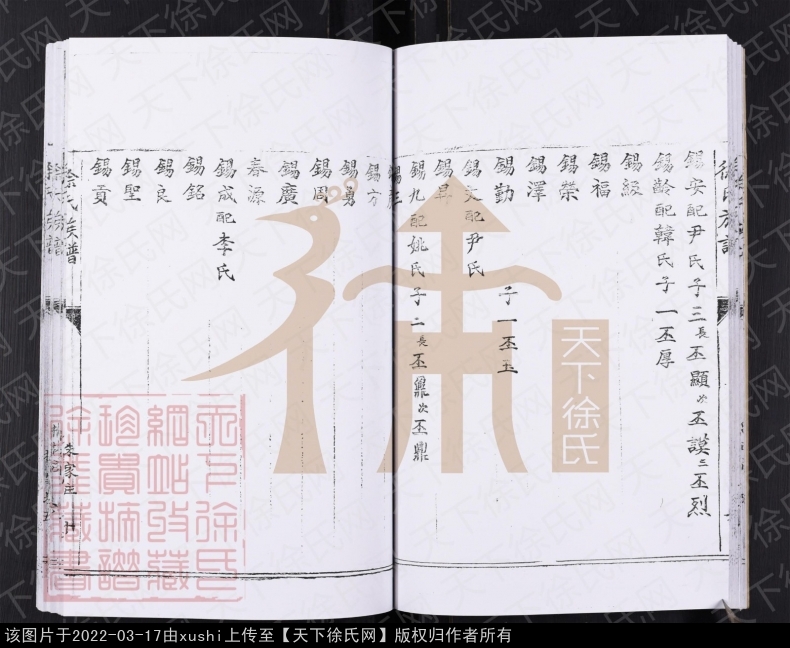 徐氏族譜
錫安配尹氏子三長丕顯次丕謨三丕烈
錫齡配韓氏子一丕厚
錫級
錫福
錫榮
錫澤
錫勤 子一丕玉
錫文配尹氏
錫昇
錫九配姚氏子二長丕鼐次丕鼎
錫彤
錫方
錫勇
錫周
錫廣
春源
錫成配李氏
錫銘
錫良
錫聖
錫貢
徐氏族譜
朱家庄
天下徐氏
天下徐氏網站收藏
珍貴捕譜
天下徐氏网
该图片于2022-03-17由xushi上传至【天下徐氏网】版权归作者所有